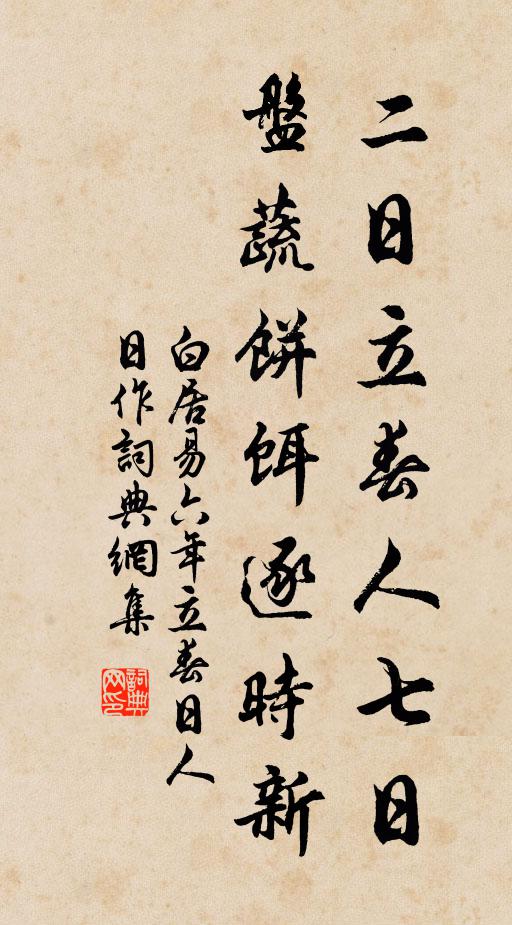 二日立春人七日
盤蔬餅餌逐時新
白居易六年立春日人
日作詞典網集
詞典网印